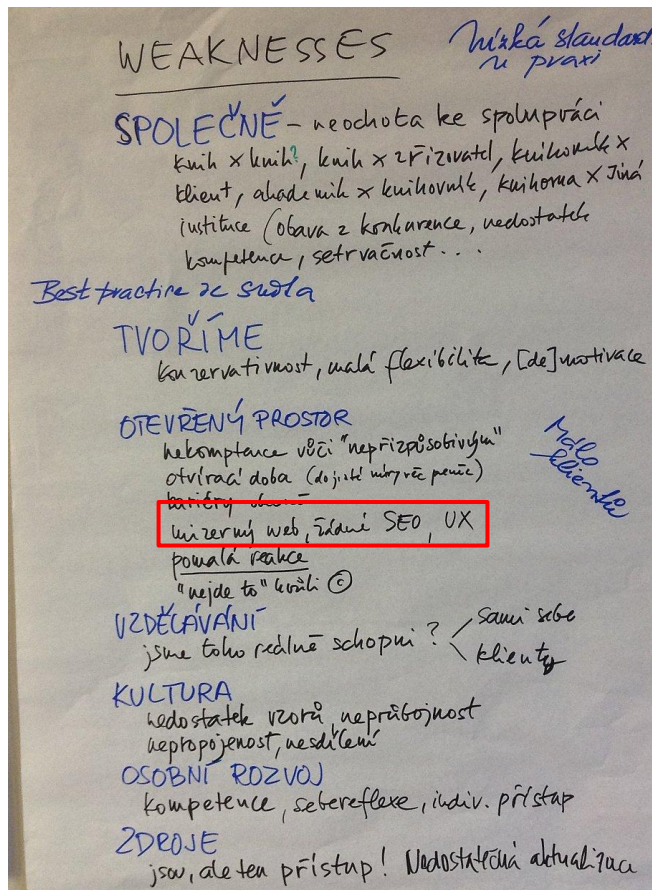 WEAKNESSES
Nízká standard.
v praxi
SPOLEČNĚ - neochota ke spolupráci
knih x knih?, knih x zřizovatel, knihovník x
klient, akademik x knihovník, knihovna x Jiná
instituce (obava z konkurence, nedostatek
kompetence, setrvačnost...
Best practice ze světa
TVOŘÍME
konzervativnost, malá flexibilita, [de]motivace
OTEVŘENÝ PROSTOR
nekompetence vůči "nepřizpůsobivým"
otvírací doba (do jisté míry věc peněz)
Málo
klientů
bariéry
mizerný web, žádné SEO, UX
pomalá reakce
"nejde to" kvůli ©
VZDĚLÁVÁNÍ
jsme toho reálně schopni? sami sebe
klienty
KULTURA
nedostatek vzorů, neprůbojnost
nepropojenost, nesdílení
OSOBNÍ ROZVOJ
kompetence, sebereflexe, indiv. přístup
ZDROJE
jsou, ale ten přístup! Nedostatečná aktualizace